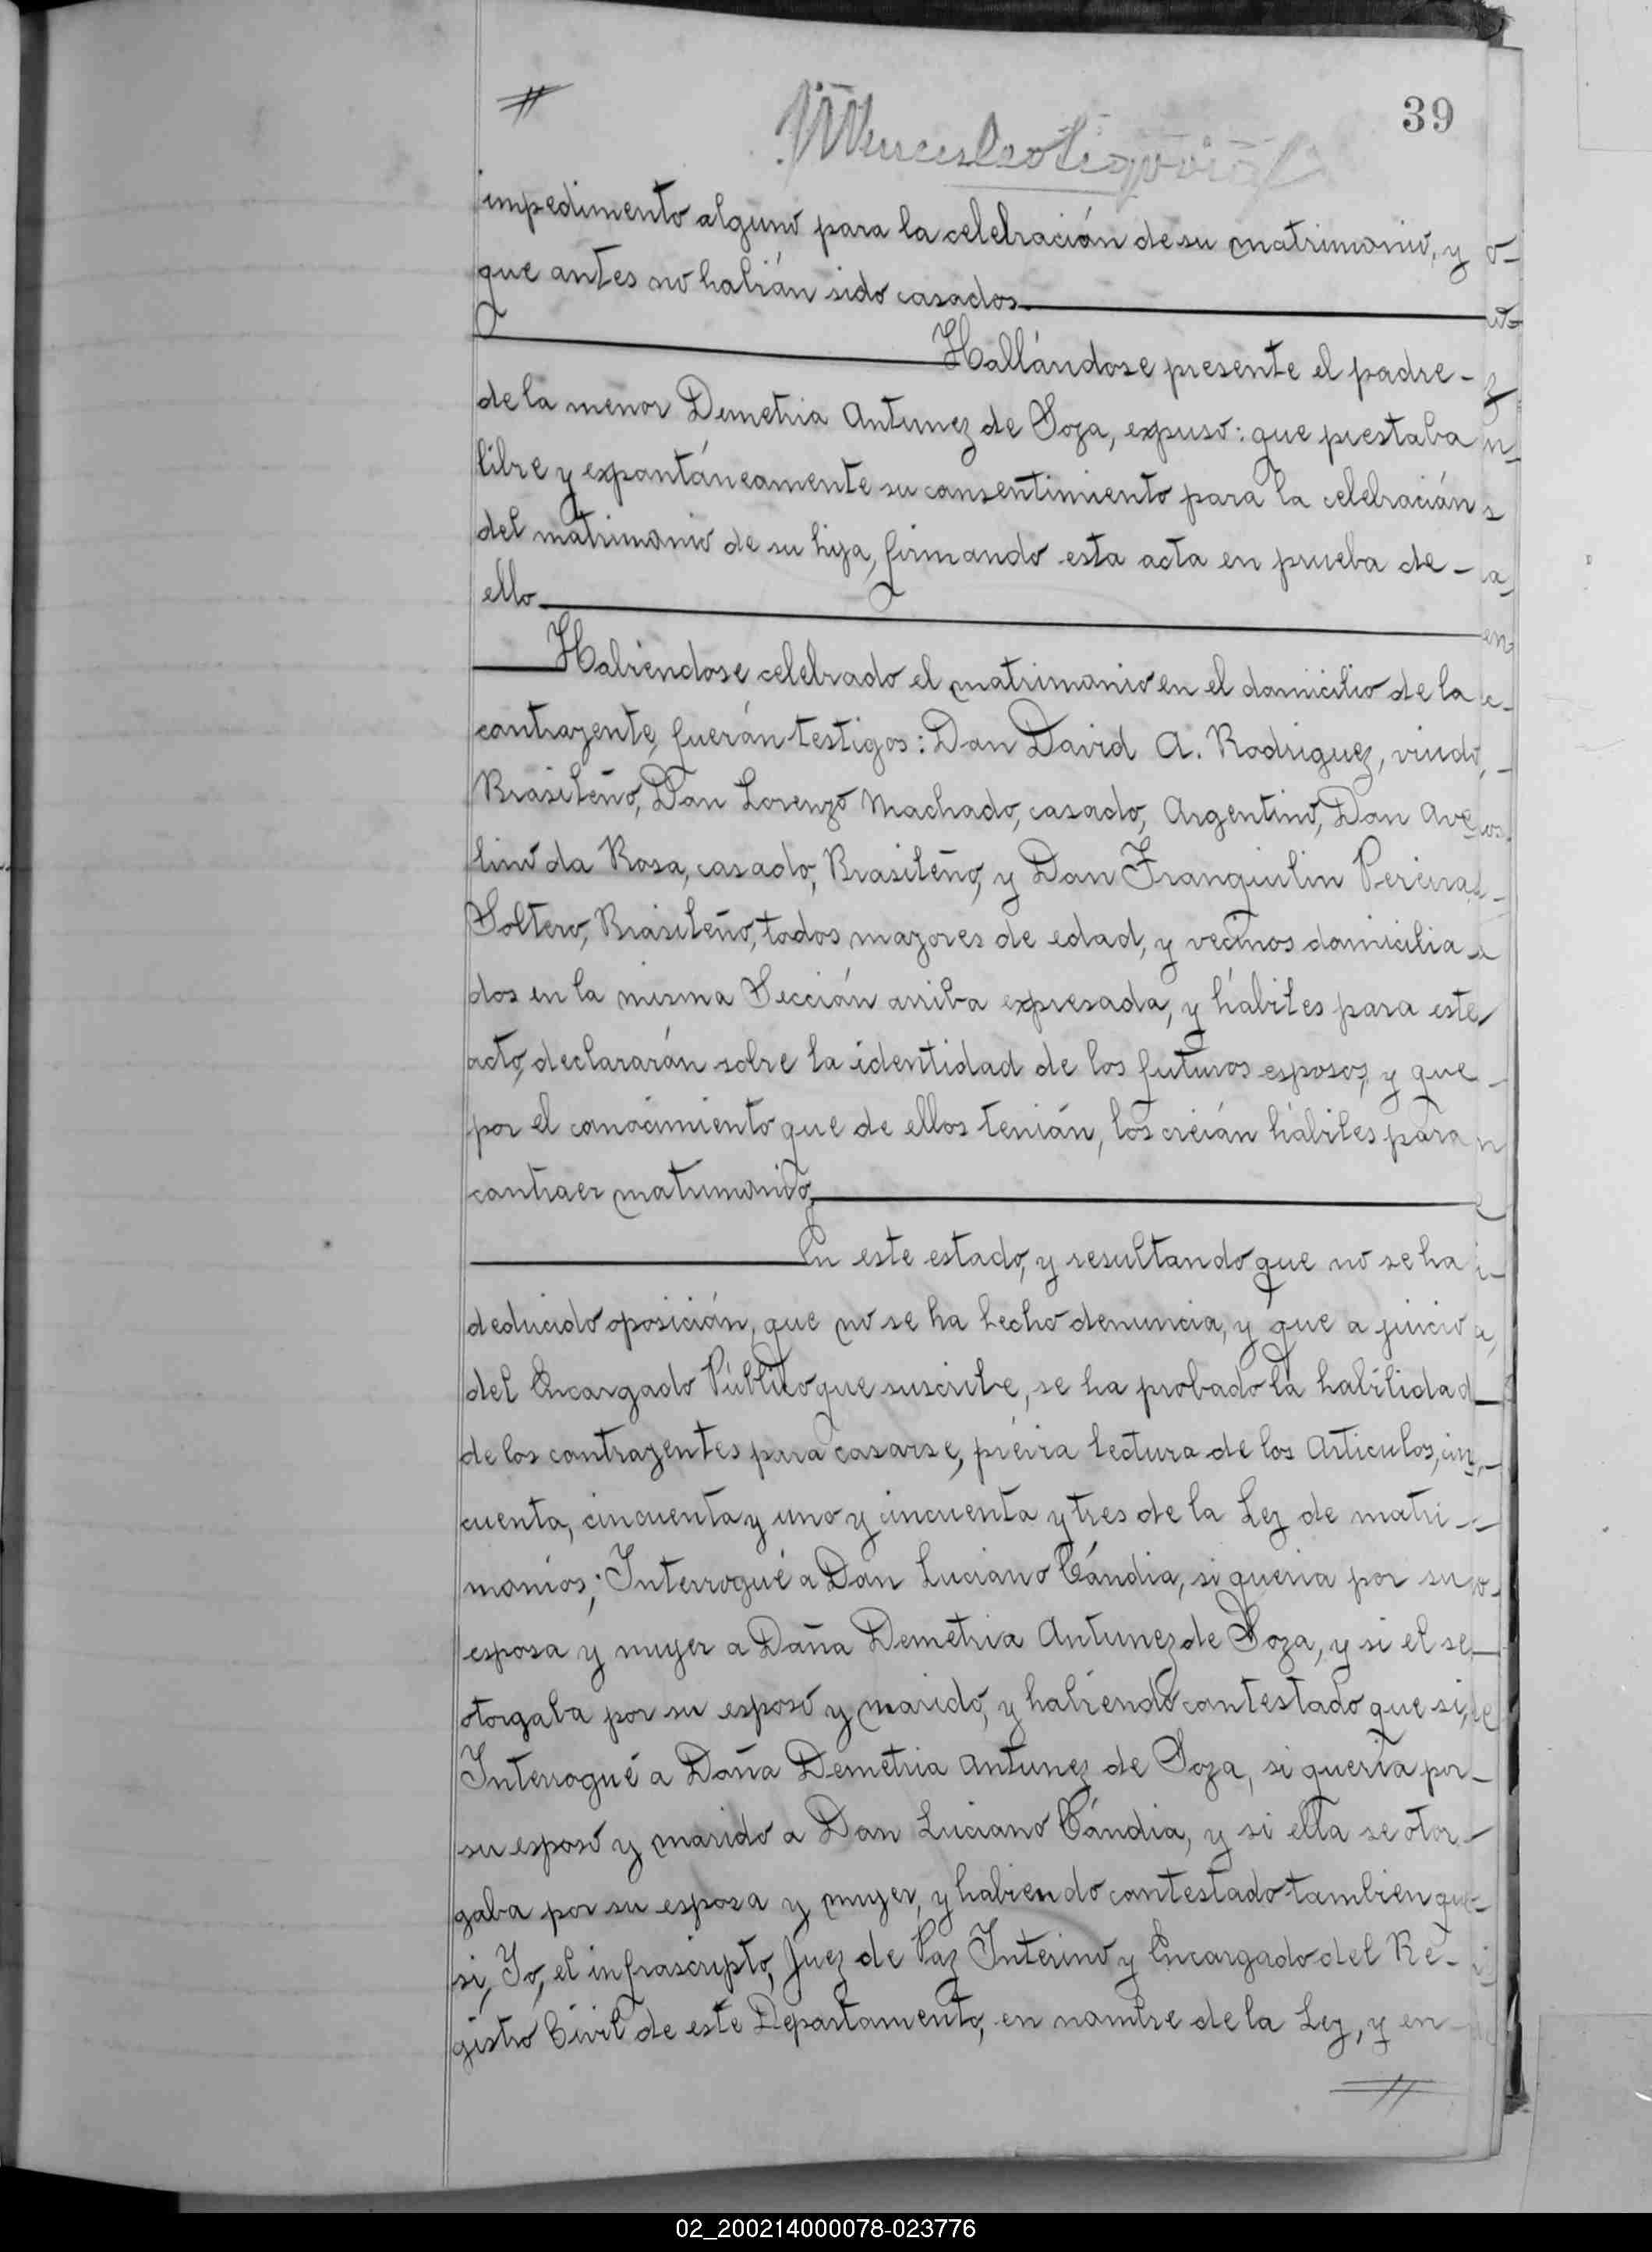 39
impedimento alguno para la celebración de su matrimonio, y
que antes no habián sido casados.
Hallándose presente el padre-
de la menor Demetria Antunez de Soza, expuso: que prestaba
libre y expontáneamente su consentimiento para la celebración
del matrimonio de su hija, firmando esta acta en prueba de-
ello.
Habiendose celebrado el matrimonio en el domicilio de la
contrayente, fuerón testigos: Don David A. Rodriguez, viudo,
Brasileño, Don Lorenzo Machado, casado, Argentino, Don Ave
lino da Rosa, casado, Brasileño, y Don Franquilin Pereira,
Soltero, Brasileño, todos mayores de edad, y vecinos domicilia-
dos en la misma Sección arriba expresada, y hábiles para este
acto, declararán sobre la identidad de los futuros esposos, y que
por el conocimiento que de ellos tenián, los creián hábiles para
contraer matrimonio.
En este estado, y resultando que no se ha
deducido oposición, que no se ha hecho denuncia, y que a juicio
del Encargado Público que suscribe, se ha probado la habilidad
de los contrayentes para casarse, prévia lectura de los Articulos, cin
cuenta, cincuenta y uno y cincuenta y tres de la Ley de matri-
monios; Interrogué a Don Luciano Cándia, si queria por su
esposa y mujer a Doña Demetria Antunez de Soza, y si el se
otorgaba por su esposo y marido, y habiendo contestado que si,
Interrogué a Doña Demetria Antunez de Soza, si queria por
su esposo y marido a Don Luciano Cándia, y si ella se otor-
gaba por su esposa y mujer, y habiendo contestado tambien que
si, Yo, el infrascripto, Juez de Paz Interino y Encargado del Re-
gistro Civil de este Departamento, en nombre de la Ley, y en
02_200214000078-023776